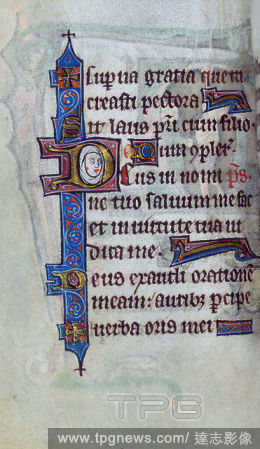 ple sup̄na gratia quem
creasti pectora
Sit laus pr̄i cum filio
eum 9plet̄
Deus in nomi p̄s
ne tuo saluum me fac
et in uirtute tua iu
dica me
Deus exaudi oratione
meam: auribꝫ percipe
uerba oris mei
TPG
www.tpgnews.com/ 達志影像